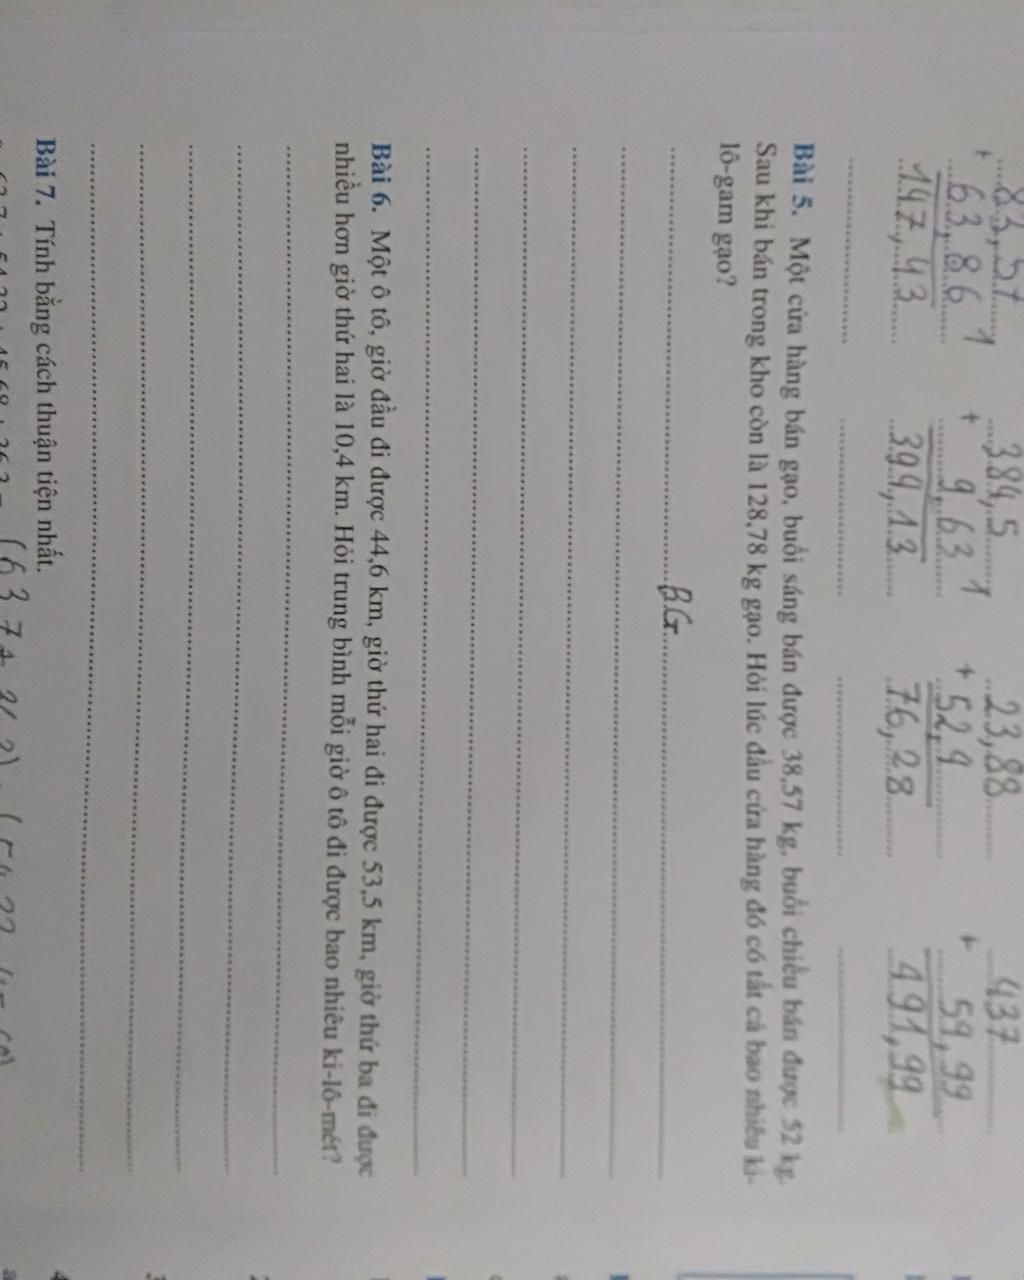 83,57 384,5 23,88 437
+ 63,86 + 9,63 + 52,4 + 59,99
147,43 394,13 76,28 491,99
Bài 5. Một cửa hàng bán gạo, buổi sáng bán được 38,57 kg, buổi chiều bán được 52 kg.
Sau khi bán trong kho còn là 128,78 kg gạo. Hỏi lúc đầu cửa hàng đó có tất cả bao nhiêu ki-
lô-gam gạo?
BG
Bài 6. Một ô tô, giờ đầu đi được 44,6 km, giờ thứ hai đi được 53,5 km, giờ thứ ba đi được
nhiều hơn giờ thứ hai là 10,4 km. Hỏi trung bình mỗi giờ ô tô đi được bao nhiêu ki-lô-mét?
Bài 7. Tính bằng cách thuận tiện nhất.